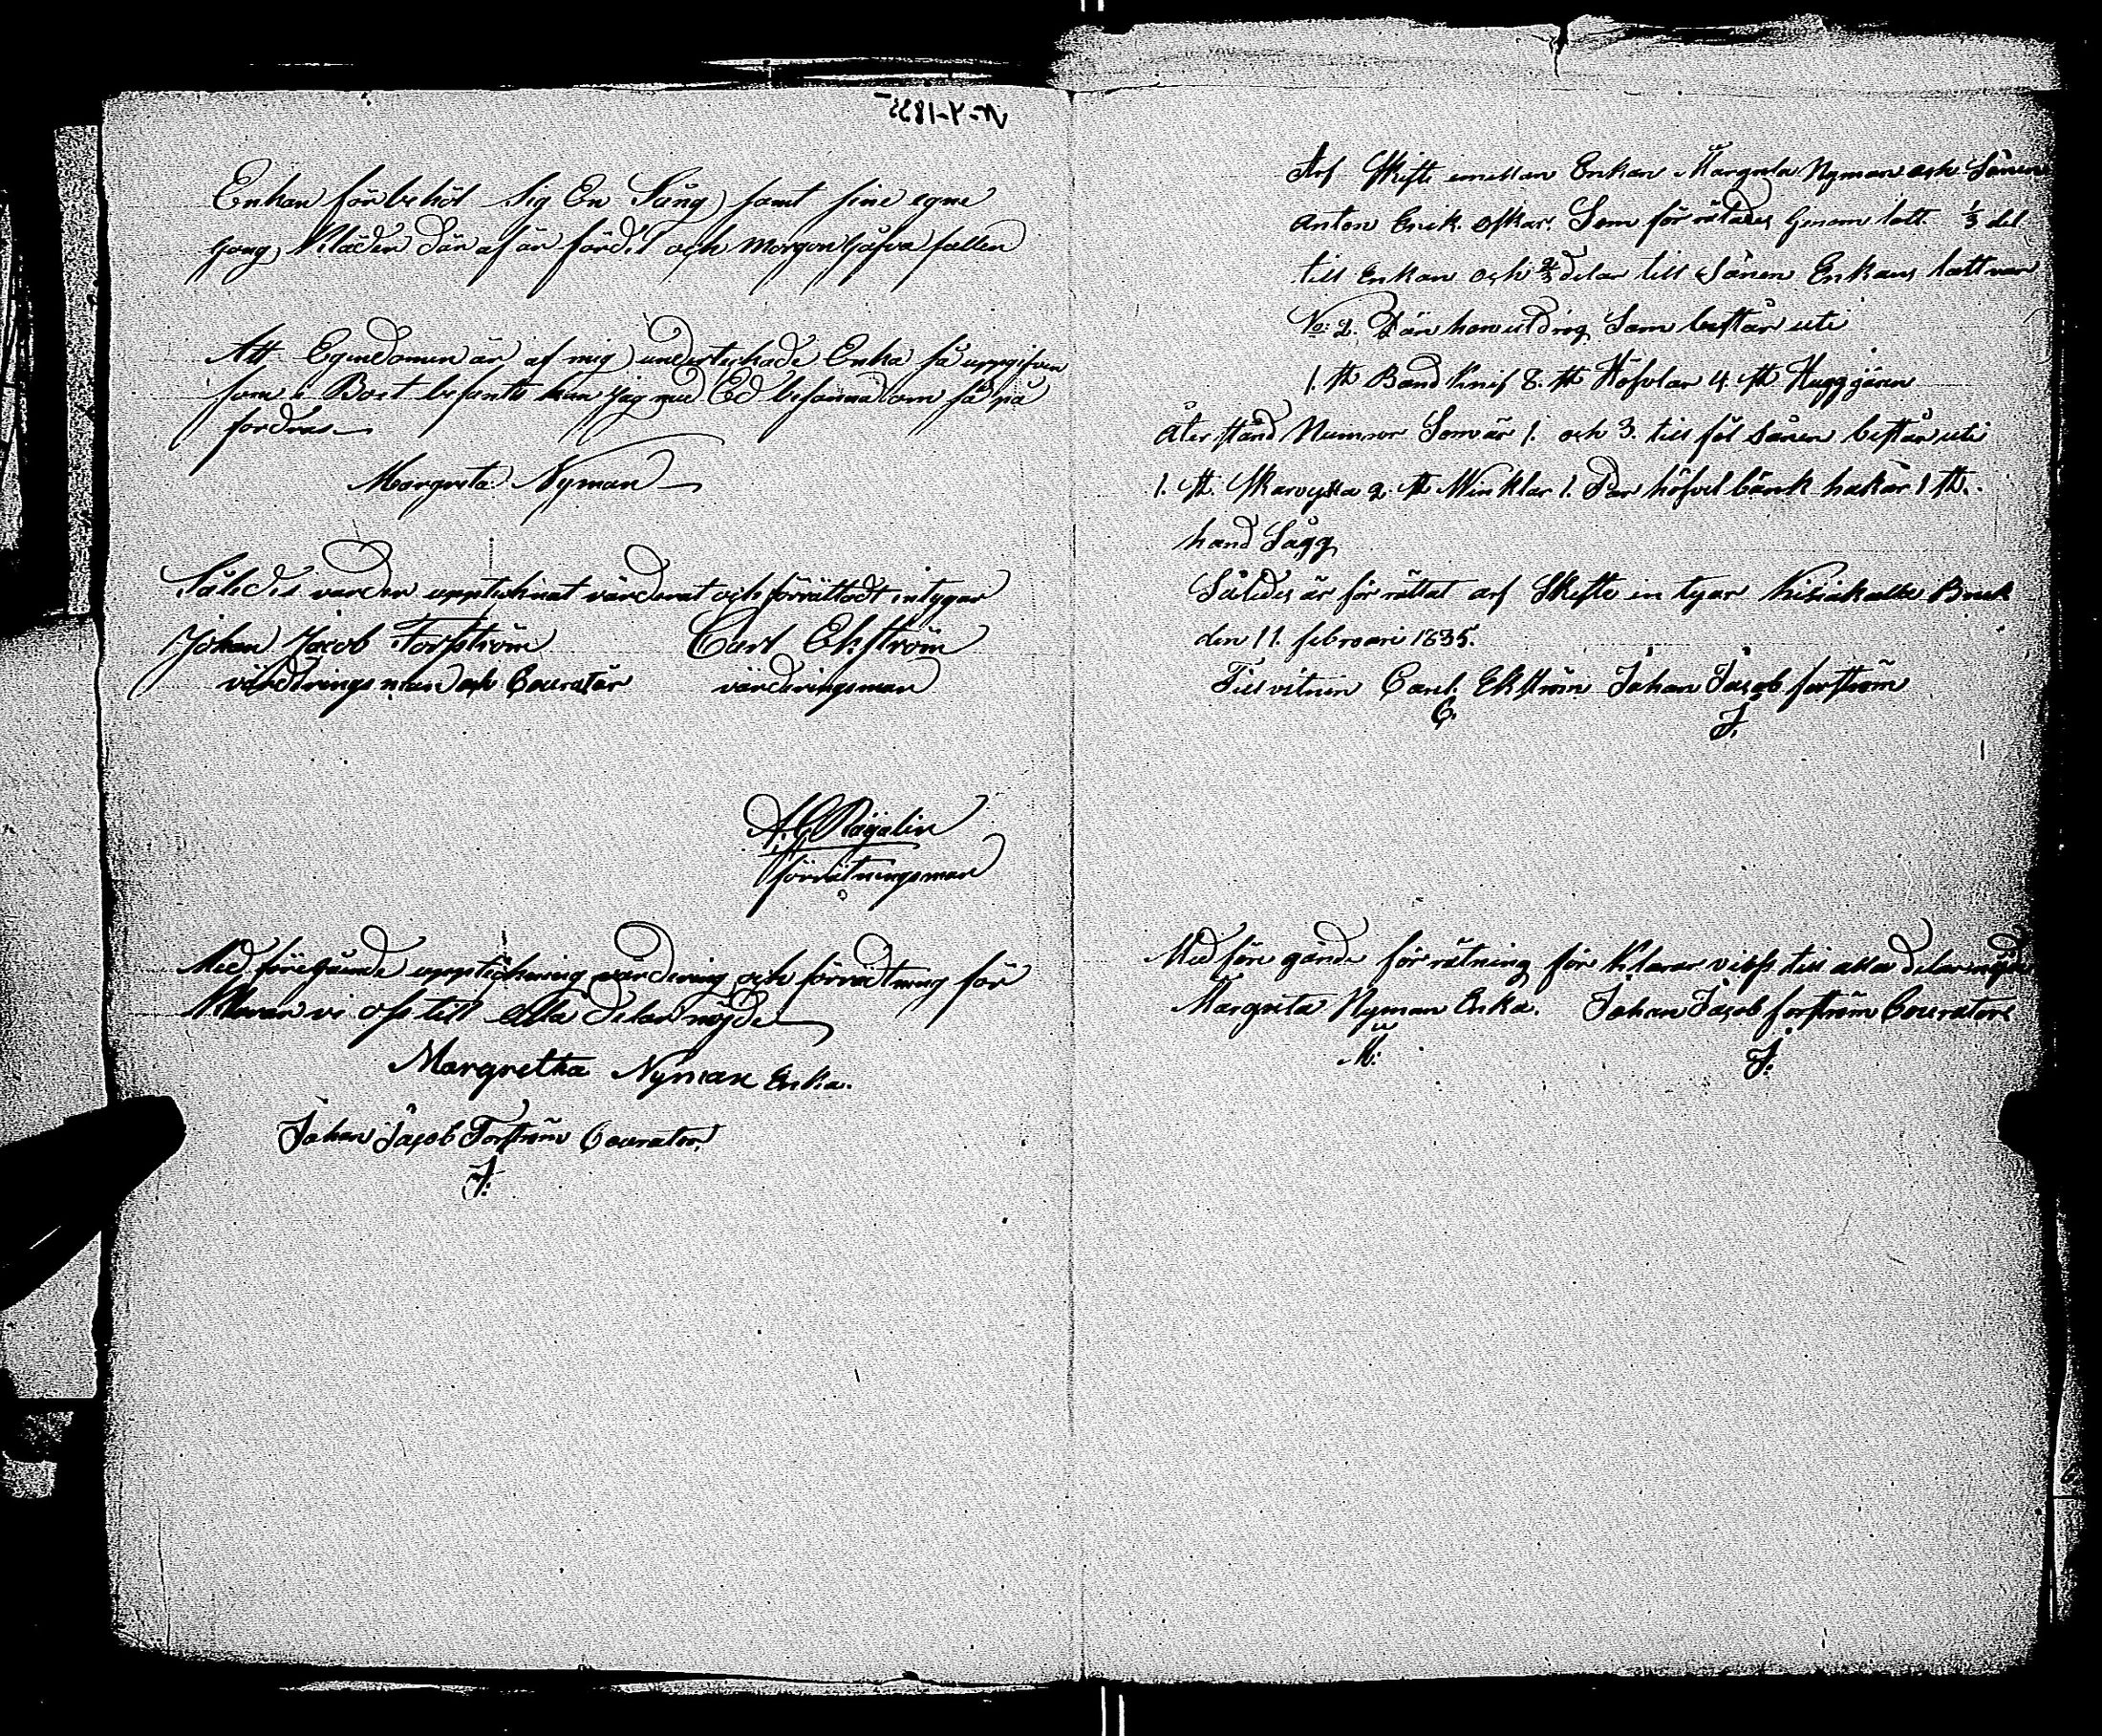 N-4-1835
Enkan förbehöl sig En Säng samt sine egne
gang Kläder där af är fördel och Morgon gåfva fallen
Att Egendomen är af mig undertecknade Enka så uppgifven
som i Boet befants kan jag med Ed besanna om så på
fordras
Margreta Nyman
Således varder uppteknat värderat och förrättadt intygar
Johan Jacob Forsström Carl Ekström
värderings man och Courator värderingsman
förrätningsman
Med föregående uppteckning värdering och förrättning för
klaran vi oss till alla delar nöjde
Margretha Nyman Enka.
Johan Jacob Forström Courator
J. F.
Arf Skifte emellan Enkan Margreta Nyman och Sånen
Anton Erik Oskar. Som för rätades Genom lott 1/3 del
till Enkan och 2/3 delar till Sånen Enkans lott var
No: 2. Där hon utdrog Som består uti
1. st. Band knif 8. st Höfvlar 4. st Huggjärn
Åter stånd Numror Som är 1. och 3. till föl Sånen består uti
1. st. Skarvyxa 2 st Winklar 1. Par höfvel bänk hakar 1 st.
hand Sågg
Således är för rättat arf Skifte in tygar Kisiakallie Bruk
den 11. februari 1835.
Till vitnen Carl Ekström Johan Jacob forström
C. J.
Med före gånde för rätning för klarar vi oss till alla delar nöjde
Margreta Nyman Enka. Johan Jacob forström Couratore
M: J: